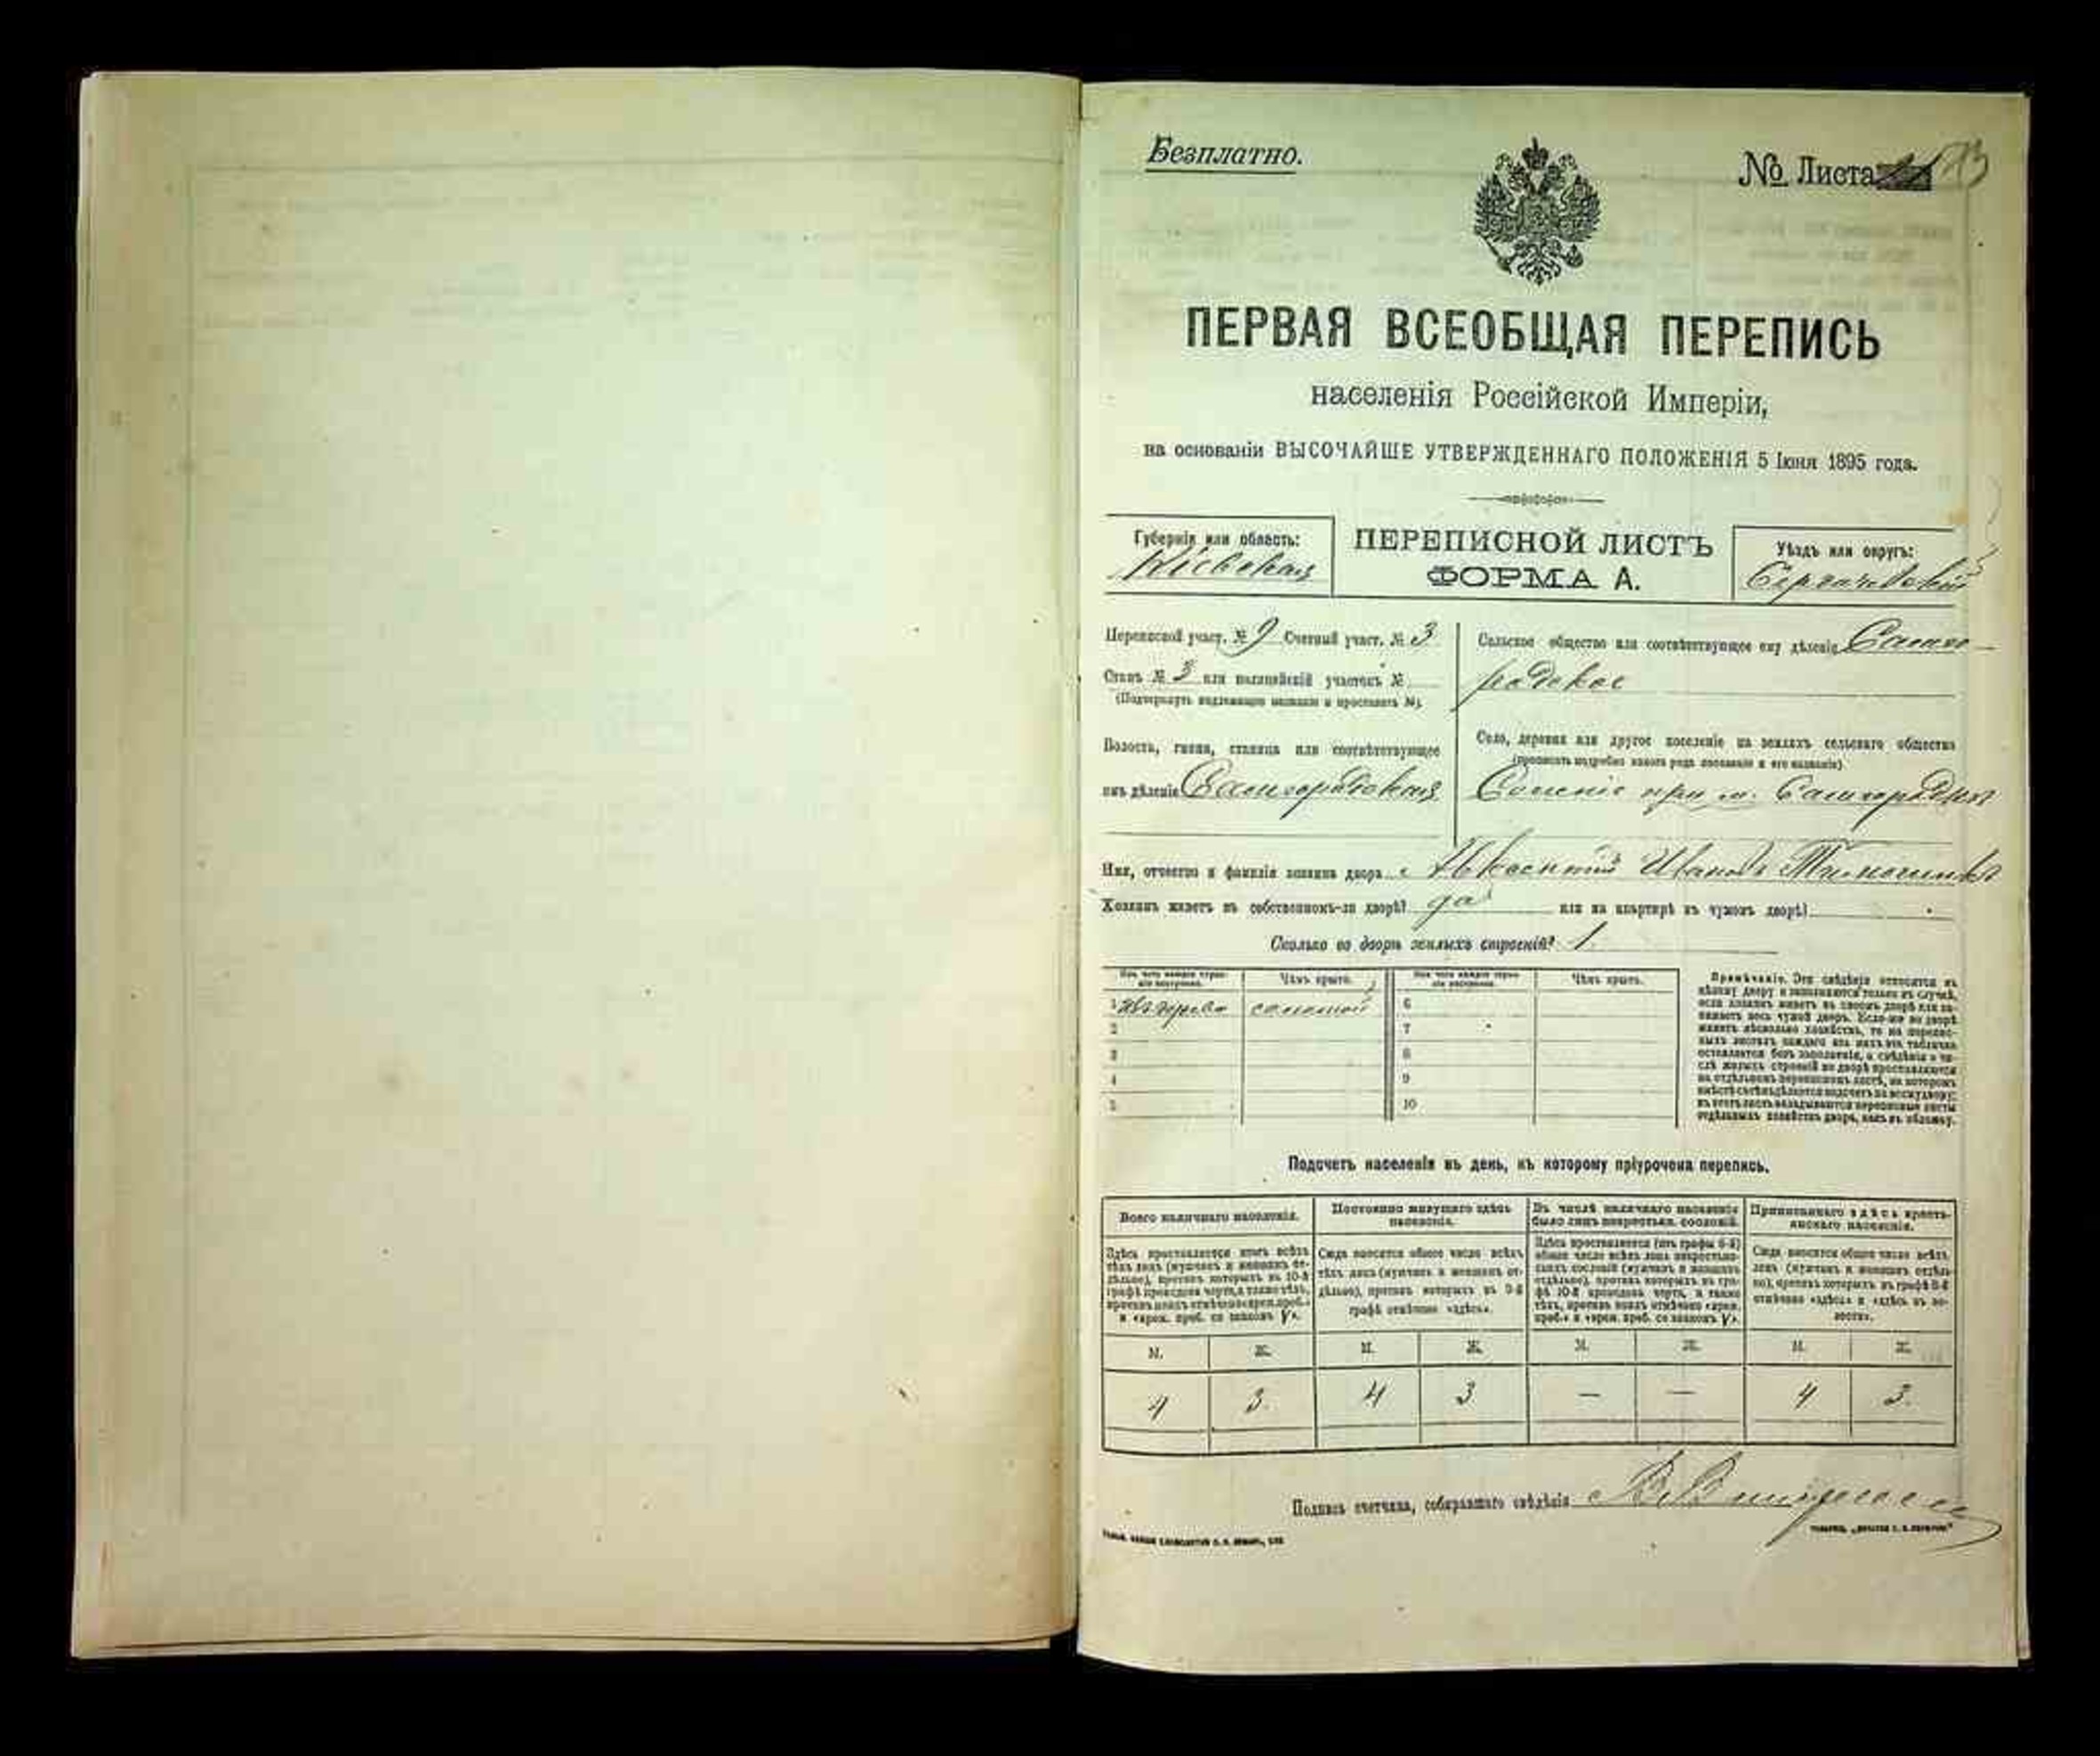 Безплатно.
№ Листа
ПЕРВАЯ ВСЕОБЩАЯ ПЕРЕПИСЬ
населенія Россійской Имперіи,
на основаніи ВЫСОЧАЙШЕ УТВЕРЖДЕННАГО ПОЛОЖЕНІЯ 5 Іюня 1895 года.
Губернія или область:
Кіевская
ПЕРЕПИСНОЙ ЛИСТЪ
ФОРМА А.
Уѣздъ или округъ:
Переписной участ. № 9 Счетный участ. № 3
Станъ № 3 или полицейскій участокъ №
(Подчеркнуть надлежащее названіе и проставить №).
Волость, гмина, станица или соотвѣтствующее
имъ дѣленіе Самгородская
Сельское общество или соотвѣтствующее ему дѣленіе Самго-
родское
Село, деревня или другое поселеніе на земляхъ сельскаго общества
(прописать подробно какого рода поселеніе и его названіе)
при м. Самгородкѣ
Имя, отчество и фамилія хозяина двора Ивановъ
Хозяинъ живетъ въ собственномъ-ли дворѣ? да или на квартирѣ въ чужомъ дворѣ?
Сколько во дворѣ жилыхъ строеній? 1
Изъ чего каждое строеніе построено. Чѣмъ крыто. Изъ чего каждое строеніе построено. Чѣмъ крыто.
1 изъ дерева соломой 6
2 7
3 8
4 9
5 10
Примѣчаніе. Эти свѣдѣнія относятся къ
цѣлому двору и заполняются только въ случаѣ,
если хозяинъ живетъ въ своемъ дворѣ или занимаетъ
весь чужой дворъ. Если-же во дворѣ
живетъ нѣсколько хозяйствъ, то на переписныхъ
листахъ каждаго изъ нихъ эта табличка
оставляется безъ заполненія, а свѣдѣнія о числѣ
жилыхъ строеній во дворѣ проставляются
на отдѣльномъ переписномъ листѣ, на которомъ
Подсчетъ населенія въ день, къ которому пріурочена перепись.
Всего наличнаго населенія.
Здѣсь проставляется итогъ всѣхъ
тѣхъ лицъ (мужчинъ и женщинъ отдѣльно),
противъ которыхъ въ 10-й
графѣ проведена черта, а также тѣхъ,
противъ коихъ отмѣчено «врем. преб.»
и «врем. преб. со знакомъ V».
Постоянно живущаго здѣсь
населенія.
Сюда вносится общее число всѣхъ
тѣхъ лицъ (мужчинъ и женщинъ отдѣльно),
противъ которыхъ въ 9-й
графѣ отмѣчено «здѣсь».
Въ числѣ наличнаго населенія
было лицъ некрестьян. сословій.
Здѣсь проставляется (изъ графы 6-й)
общее число всѣхъ лицъ некрестьянскихъ
сословій (мужчинъ и женщинъ
отдѣльно), противъ которыхъ въ графѣ
10-й проведена черта, а также
тѣхъ, противъ коихъ отмѣчено «врем.
преб.» и «врем. преб. со знакомъ V».
Приписаннаго здѣсь крестьянскаго
населенія.
Сюда вносится общее число всѣхъ
лицъ (мужчинъ и женщинъ отдѣльно),
противъ которыхъ въ графѣ 8-й
отмѣчено «здѣсь» и «здѣсь въ волости».
М. Ж. М. Ж. М. Ж. М. Ж.
4 3 4 3 — — 4 3
Подпись счетчика, собиравшаго свѣдѣнія